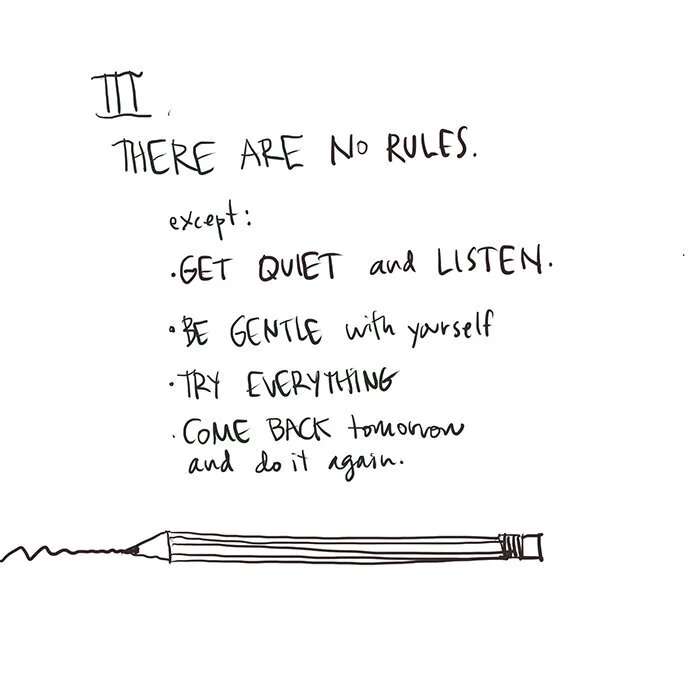 III
THERE ARE NO RULES.
except:
·GET QUIET and LISTEN.
·BE GENTLE with yourself
·TRY EVERYTHING
·COME BACK tomorrow
and do it again.